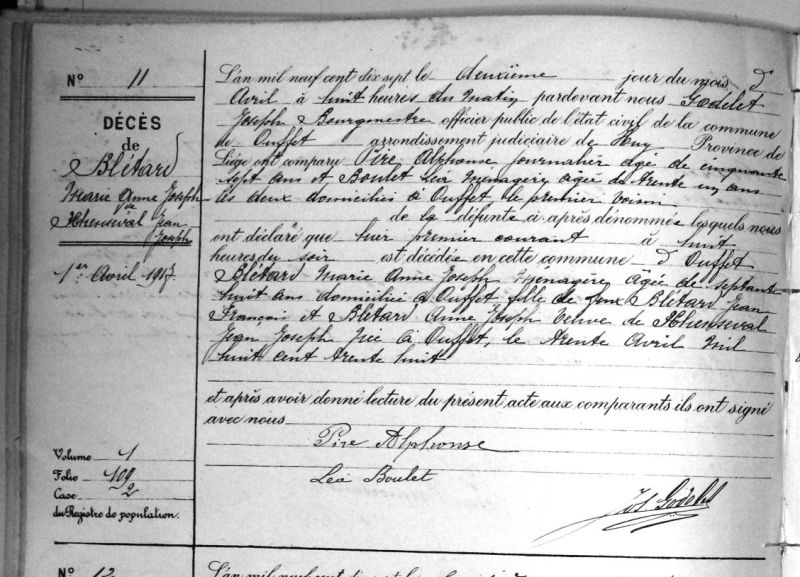 N° 11
DÉCÈS
de
Blétard
Marie Anne Joseph
de
Xhenseval Jean
Joseph
1er Avril 1917
Volume 1
Folio 109
Case 2
du Registre de population.
L'an mil neuf cent dix sept le deuxième jour du mois d'
Avril à huit heures du matin pardevant nous Godelet
Joseph Bourgmestre officier public de l'état civil de la commune
de Ouffet arrondissement judiciaire de Huy Province de
Liége ont comparu Pire, Alphonse journalier âgé de cinquante
sept ans et Boulet Léa ménagère âgée de trente un ans
les deux domiciliés à Ouffet, le premier voisin
de la défunte ci-après dénommée lesquels nous
ont déclaré que hier premier courant à huit
heures du soir est décédée en cette commune d'Ouffet
Blétard Marie Anne Joseph Ménagère, âgée de septante
huit ans domiciliée à Ouffet fille de feux Blétard Jean
François et Blétard Anne Joseph Veuve de Xhenseval
Jean Joseph Née à Ouffet, le trente Avril Mil
huit cent trente huit
et après avoir donné lecture du présent acte aux comparants ils ont signé
avec nous
Pire Alphonse
Léa Boulet
Jos. Godelet
N° 12
L'an mil neuf cent dix sept le